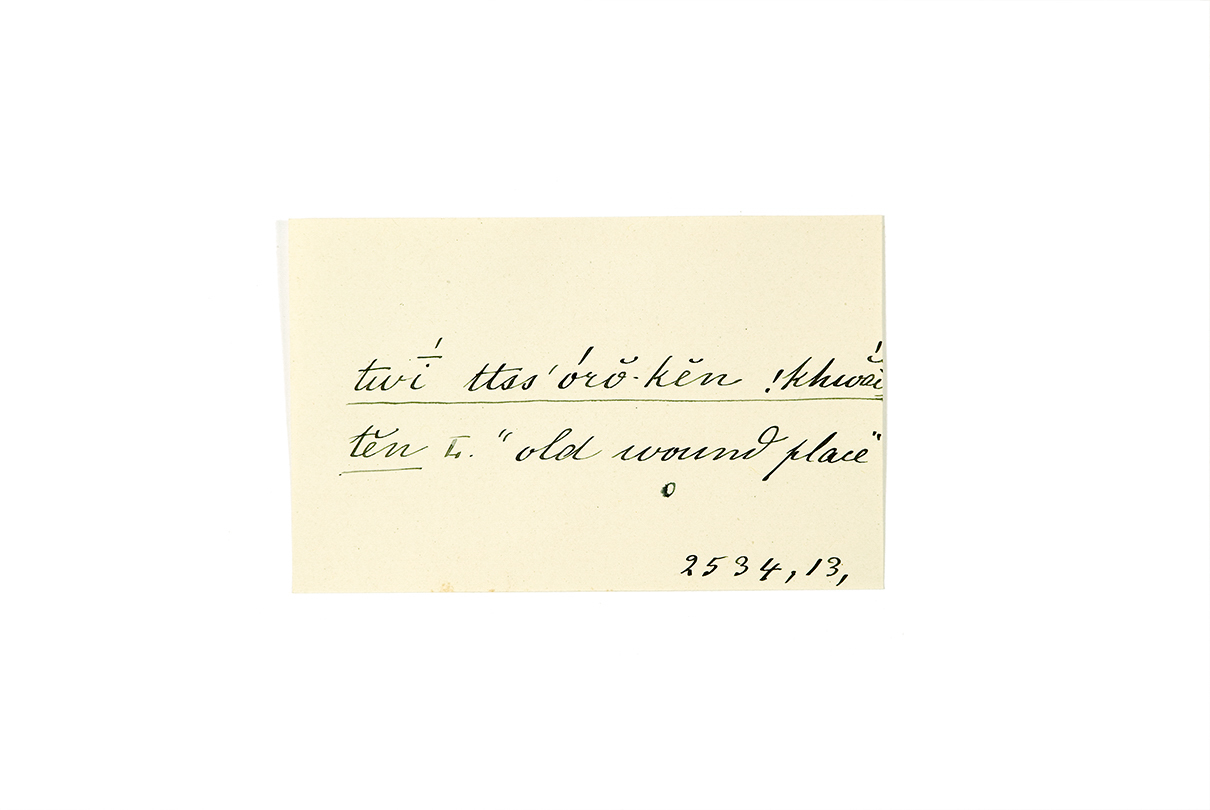 twí̱ ttss'órŏ-kĕn !khwắi
tĕn L. "old wound place"
2534,13,